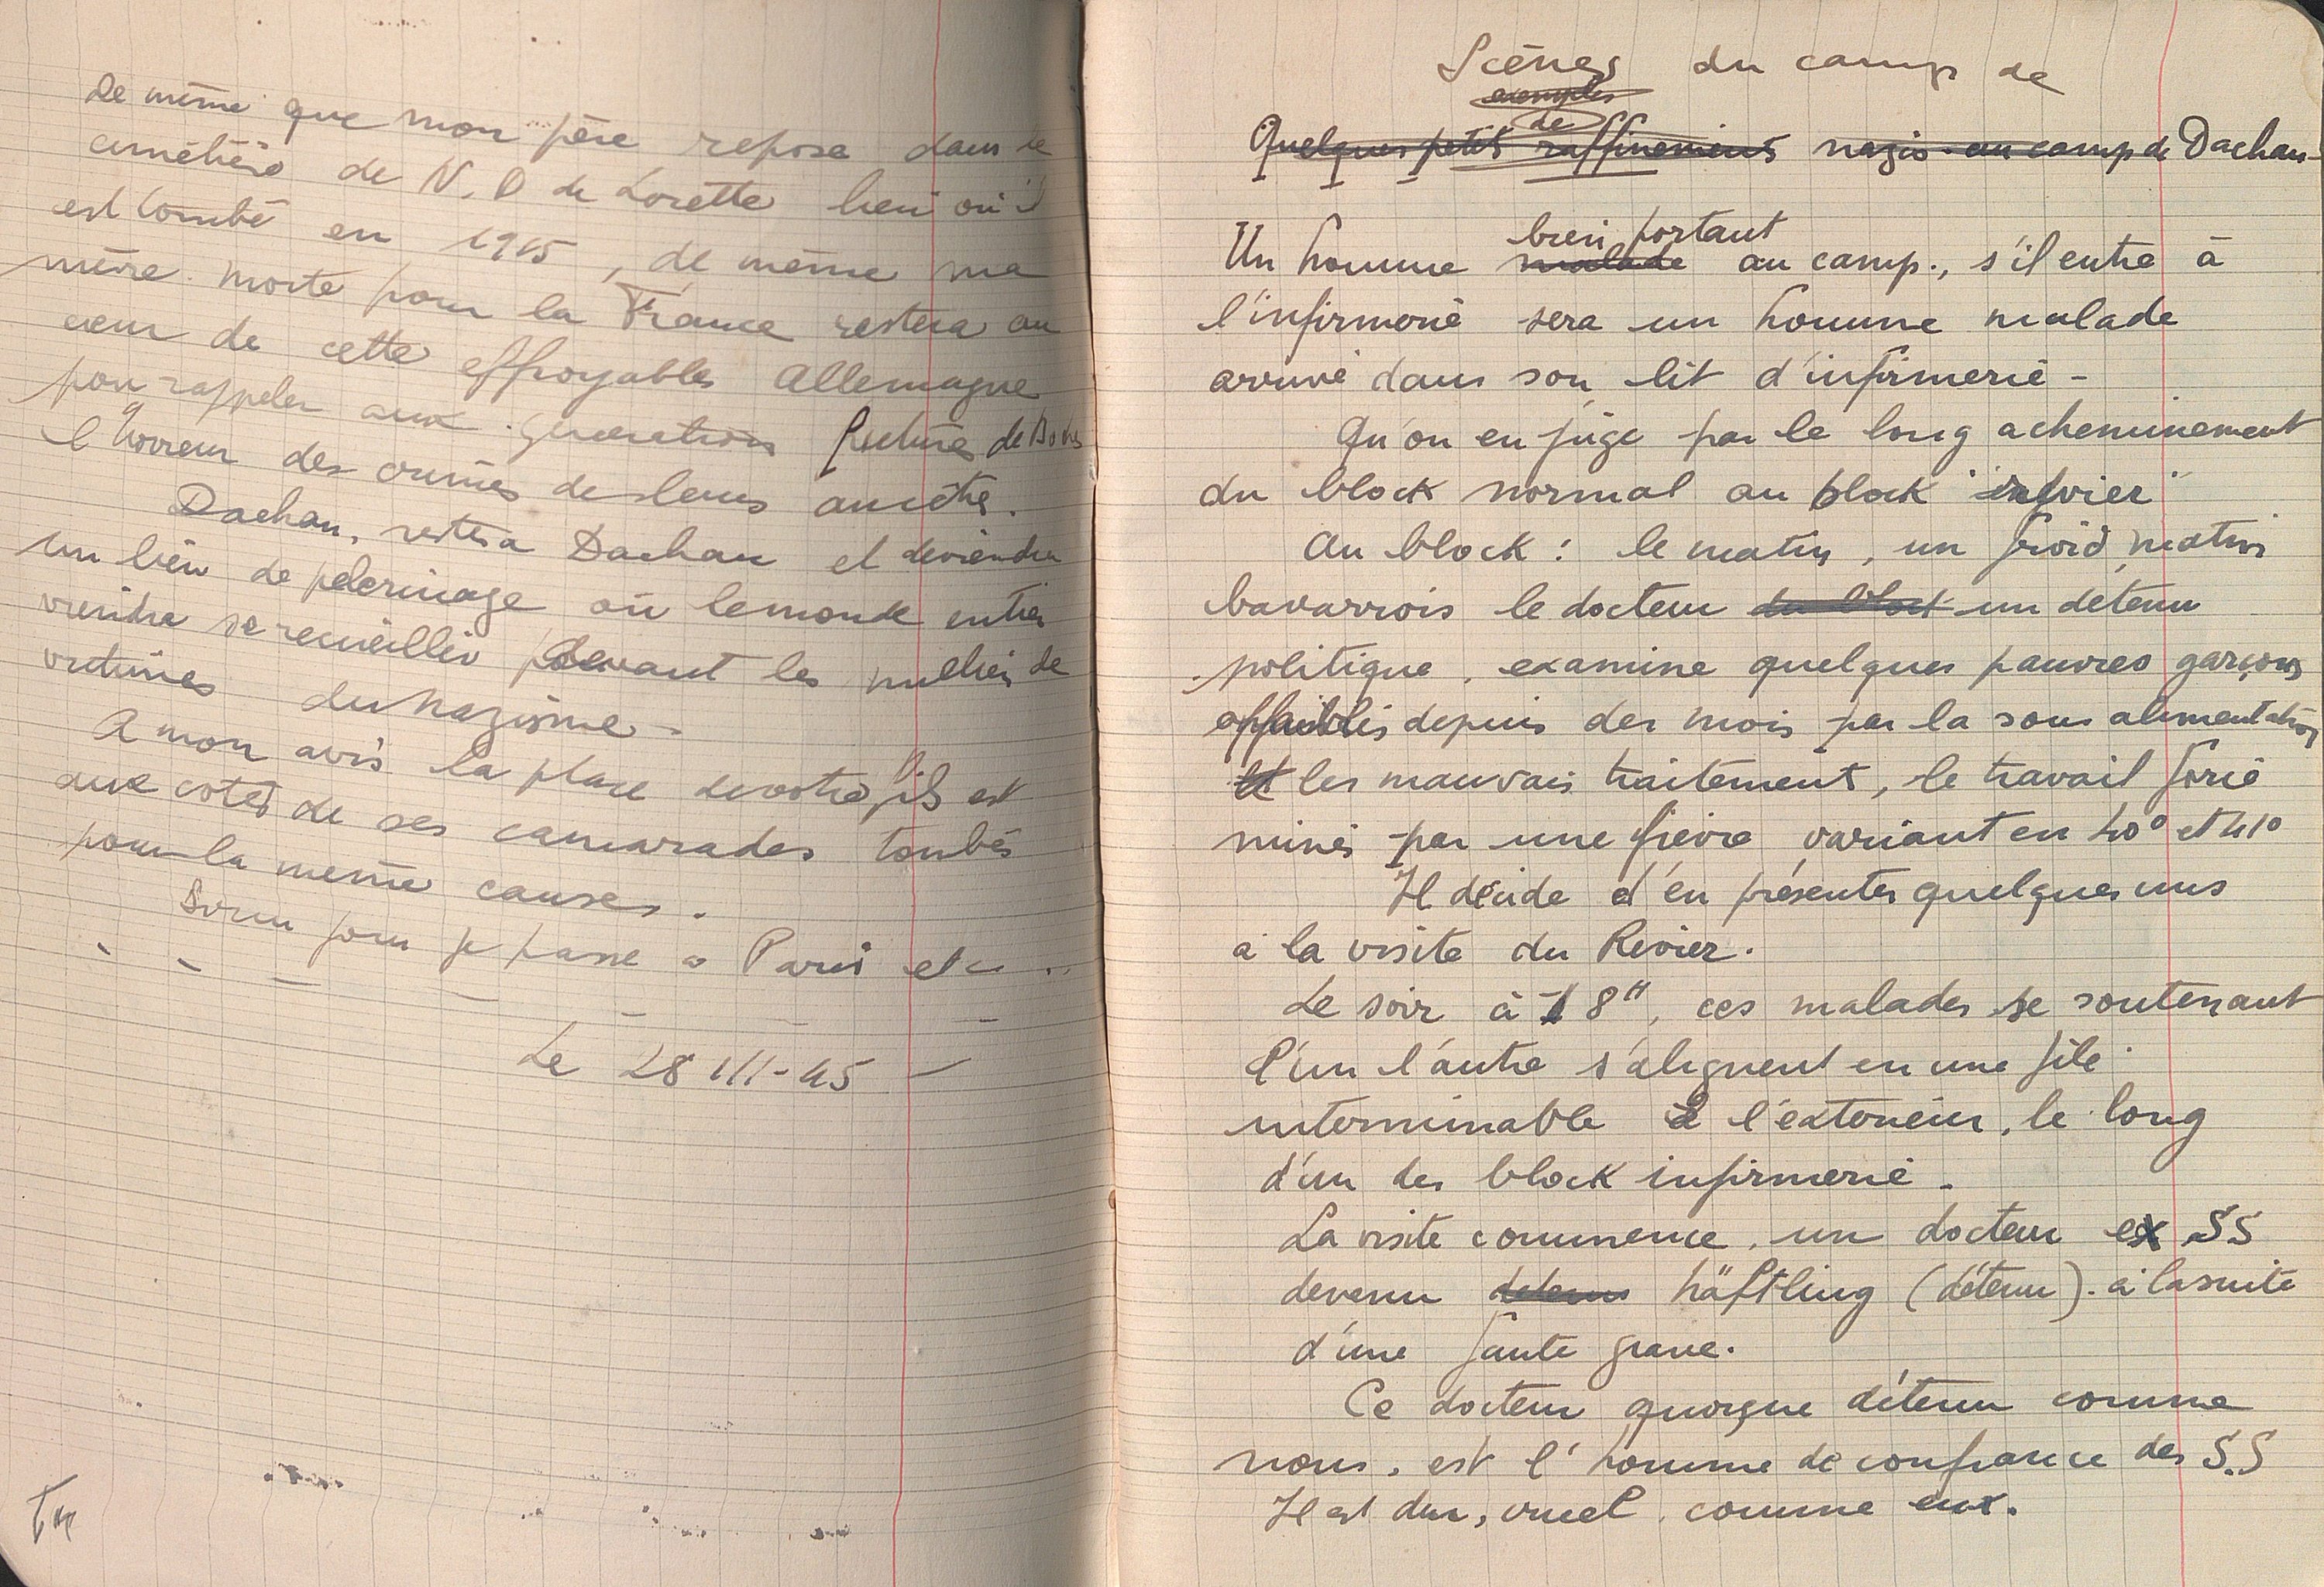 De même que mon père repose dans le
cimétière de N. D de Lorette lieu où il
est tombé en 1915, de même ma
mère morte pour la France restera au
cœur de cette effroyable Allemagne
pour rappeler aux générations futures de
l'horreur des crimes de leurs ancêtres.
Dachau, restera Dachau et deviendra
un lieu de pelerinage où le monde entier
viendra se recueillir devant les milliers de
victimes du nazisme -
A mon avis la place de votre fils est
aux cotés de ses camarades tombés
pour la meme causes.
Si un jour je passe a Paris etc ..
Le 28 III - 45 -
Scènes du camp de
exemples
de
Quelques petits raffinements nazis au camp de Dachau
bien portant
Un homme malade au camp., s'il entre à
l'infirmerie sera un homme malade
arrivé dans son lit d'infirmerie -
Qu'on en juge par le long acheminement
du block normal au block "revier"
Au block : le matin, un froid matin
bavarrois le docteur du block un détenu
politique, examine quelques pauvres garçons
affaiblis depuis des mois par la sous alimentation
et les mauvais traitement, le travail forcé
minés par une fièvre variant en 40° et 41°
Il décide d'en présenter quelques uns
a la visite du Revier.
Le soir à 18H, ces malades se soutenant
l'un l'autre s'alignent en une file
interminable à l'exterieur, le long
d'un des block infirmerie.
La visite commence, un docteur ex SS
devenu detenu häftling (détenu). à la suite
d'une faute grave.
Ce docteur quoique détenu comme
nous, est l'homme de confiance des S.S
Il est dur, cruel, comme eux.